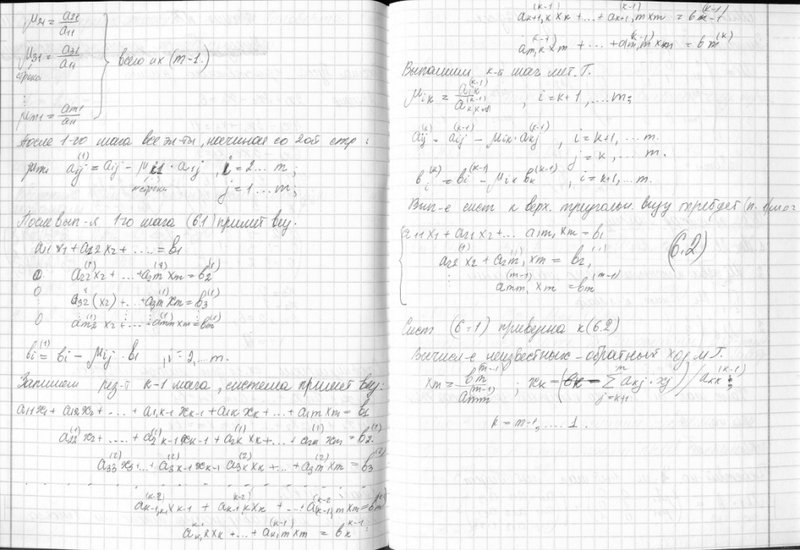 μ21 = a21/a11
μ31 = a31/a11
всего их (m-1.)
μm1 = am1/a11
После 1-го шага все эл-ты, начиная со 2ой стр:
aij^(1) = aij - μi1 · a1j, i = 2...m;
j = 1...m;
После вып-я 1-го шага (6.1) примет вид.
a11 x1 + a12 x2 + .... = b1
0 a22^(1) x2 + ... + a2m^(1) xm = b2^(1)
0 a32^(1) (x2) + ... + a3m^(1) xm = b3^(1)
0 am2^(1) x2 + ... + amm^(1) xm = bm^(1)
bi^(1) = bi - μij · b1, i = 2,...m.
Запишем рез-т k-1 шага, система примет вид:
a11 x1 + a12 x2 + ... + a1,k-1 xk-1 + a1k xk + ... + a1m xm = b1
a22^(1) x2 + .... + a2k-1^(1) xk-1 + a2k^(1) xk + ... + a2m^(1) xm = b2^(1)
a33^(2) x3 + .. + a3k-1^(2) xk-1 a3k^(2) xk + ... + a3m^(2) xm = b3^(2)
ak-1,k-1^(k-2) xk-1 + ak-1,k^(k-2) xk + ... + ak-1,m^(k-2) xm =
ak,k^(k-1) xk + ... + ak,m^(k-1) xm = bk^(k-1)
ak+1,k^(k-1) xk + ... + ak+1,m^(k-1) xm =
am,k^(k-1) xm + ... + am,m^(k-1) xm = bm^(k)
Выполним k-й шаг мет. Г.
μik = aik^(k-1)/, i = k+1,...m;
aij^(k) = aij^(k-1) - μik · akj^(k-1), i = k+1,...m.
j = k,...m.
bi^(k) = bi^(k-1) - μik bk^(k-1), i = k+1,...m.
Вып-е сист к верх. треугольн. виду приведет
a11 x1 + a12 x2 + ... a1m xm = b1
a22^(1) x2 + a2m^(1) xm = b2^(1)
amm^(m-1) xm = bm^(m-1)
(6.2)
Сист (6-1) приведена к (6.2)
Вычисл-е неизвестных - обратный ход м. Г.
xm = bm^(m-1)/amm^(m-1); xk = (bk - Σ j=k+1 m akj · xj) / akk^(k-1);
k = m-1,... 1.